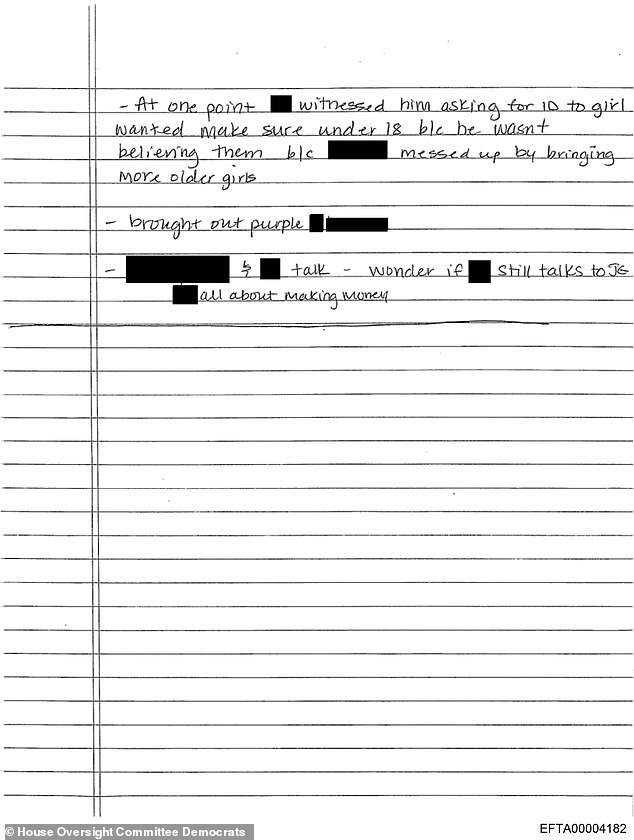 - At one point witnessed him asking for ID to girl
wanted make sure under 18 b/c he wasnt
believing them b/c messed up by bringing
more older girls
- brought out purple
- & talk - wonder if still talks to JE
all about making money
© House Oversight Committee Democrats
EFTA00004182